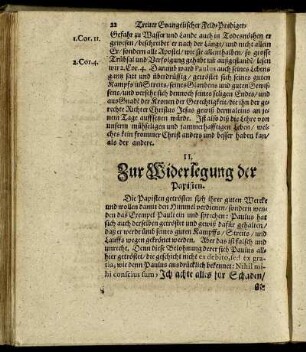 22 Treuer Evangelischer Feld-Prediger/
1. Cor. 11.
Gefahr zu Wasser und Lande auch in Todesnöthen er
gewesen/ beschreibet er nach der Länge/ und nicht allein
Er/ sondern alle Apostel/ wie sie allenthalben/ so grosse
2. Cor. 4.
Trübsal und Verfolgung gehabt und ausgestanden/ lesen
wir 2. Cor. 4. Darumb ward Paulus auch seines Lebens
gantz satt und überdrüssig/ getröstet sich seines guten
Kampffs und Streits/ seines Glaubens und guten Gewis-
sens/ und versihe sich dennoch seines seligen Endes/ und
aus Gnade der Kronen der Gerechtigkeit/ die ihm der ge-
rechte Richter Christus Jesus gewiß dermaleins an je-
nem Tage auffsetzen würde. Ist also diß die Lehre von
unserm mühseligen und jammerhafftigen Leben/ wel-
ches kein frommer Christ anders und besser haben kan/
als der andere.
II.
Zur Widerlegung der
Papisten.
Die Papisten getrösten sich ihrer guten Wercke
und wollen damit den Himmel verdienen/ sondern wen-
den das Exempel Pauli ein und sprechen: Paulus hat
sich auch derselben getröstet und gewiß dafür gehalten/
daß er werde umb seines guten Kampffs/ Streits/ und
Lauffs wegen gekrönet werden. Aber das ist falsch und
unrecht. Denn diese Belohnung derer sich Paulus all-
hier getröstet/ die geschicht nicht ex debito, sed ex gra-
tia, wie denn Paulus ausdrücklich bekennet: Nihil mi-
hi conscius sum, Ich achte alles für Schaden/